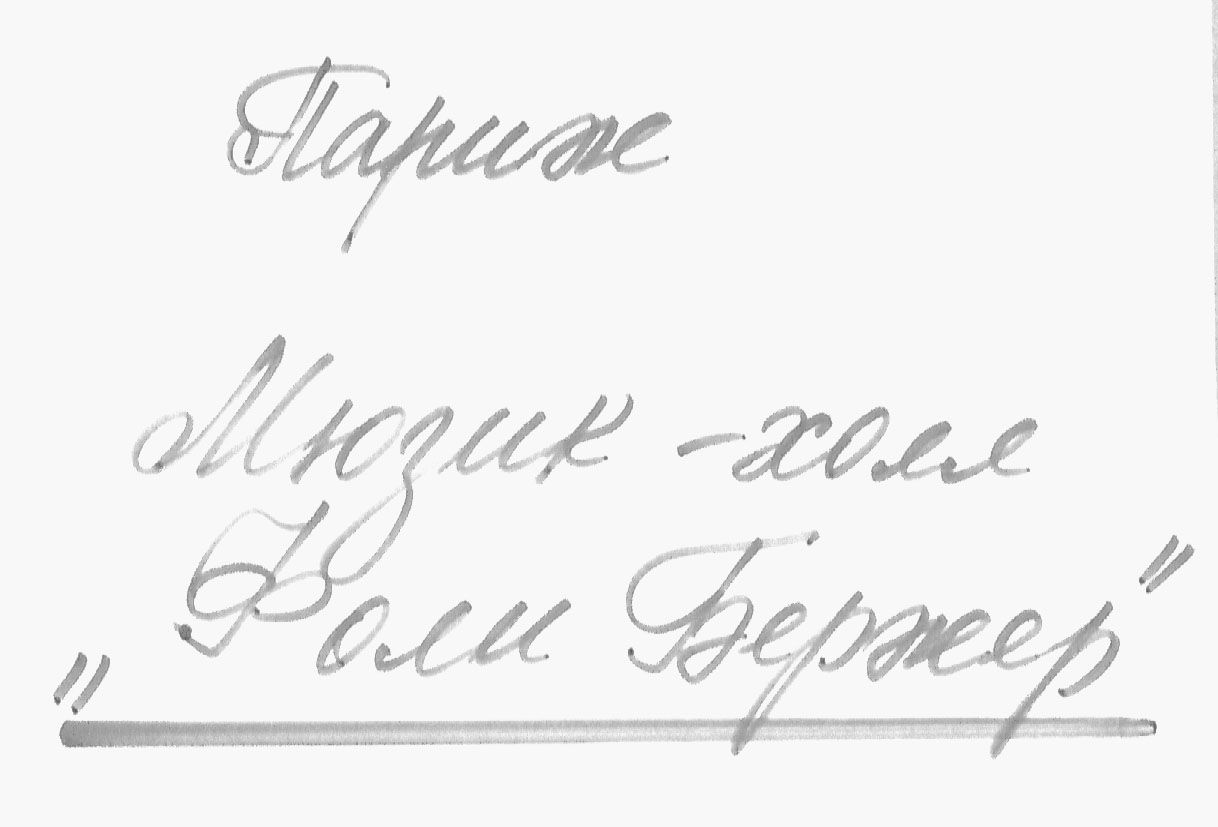 Париж
Мюзик-холл
"Фоли Бержер"